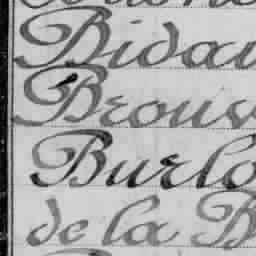 Bidau
Brouv
Burlo
de la B